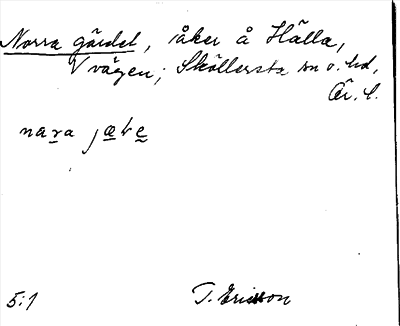 Norra gärdet, åker å Hälla,
V vägen; Sköllersta sn o. hd,
Ör. l.
nara jæte
5:1 T. Ericsson